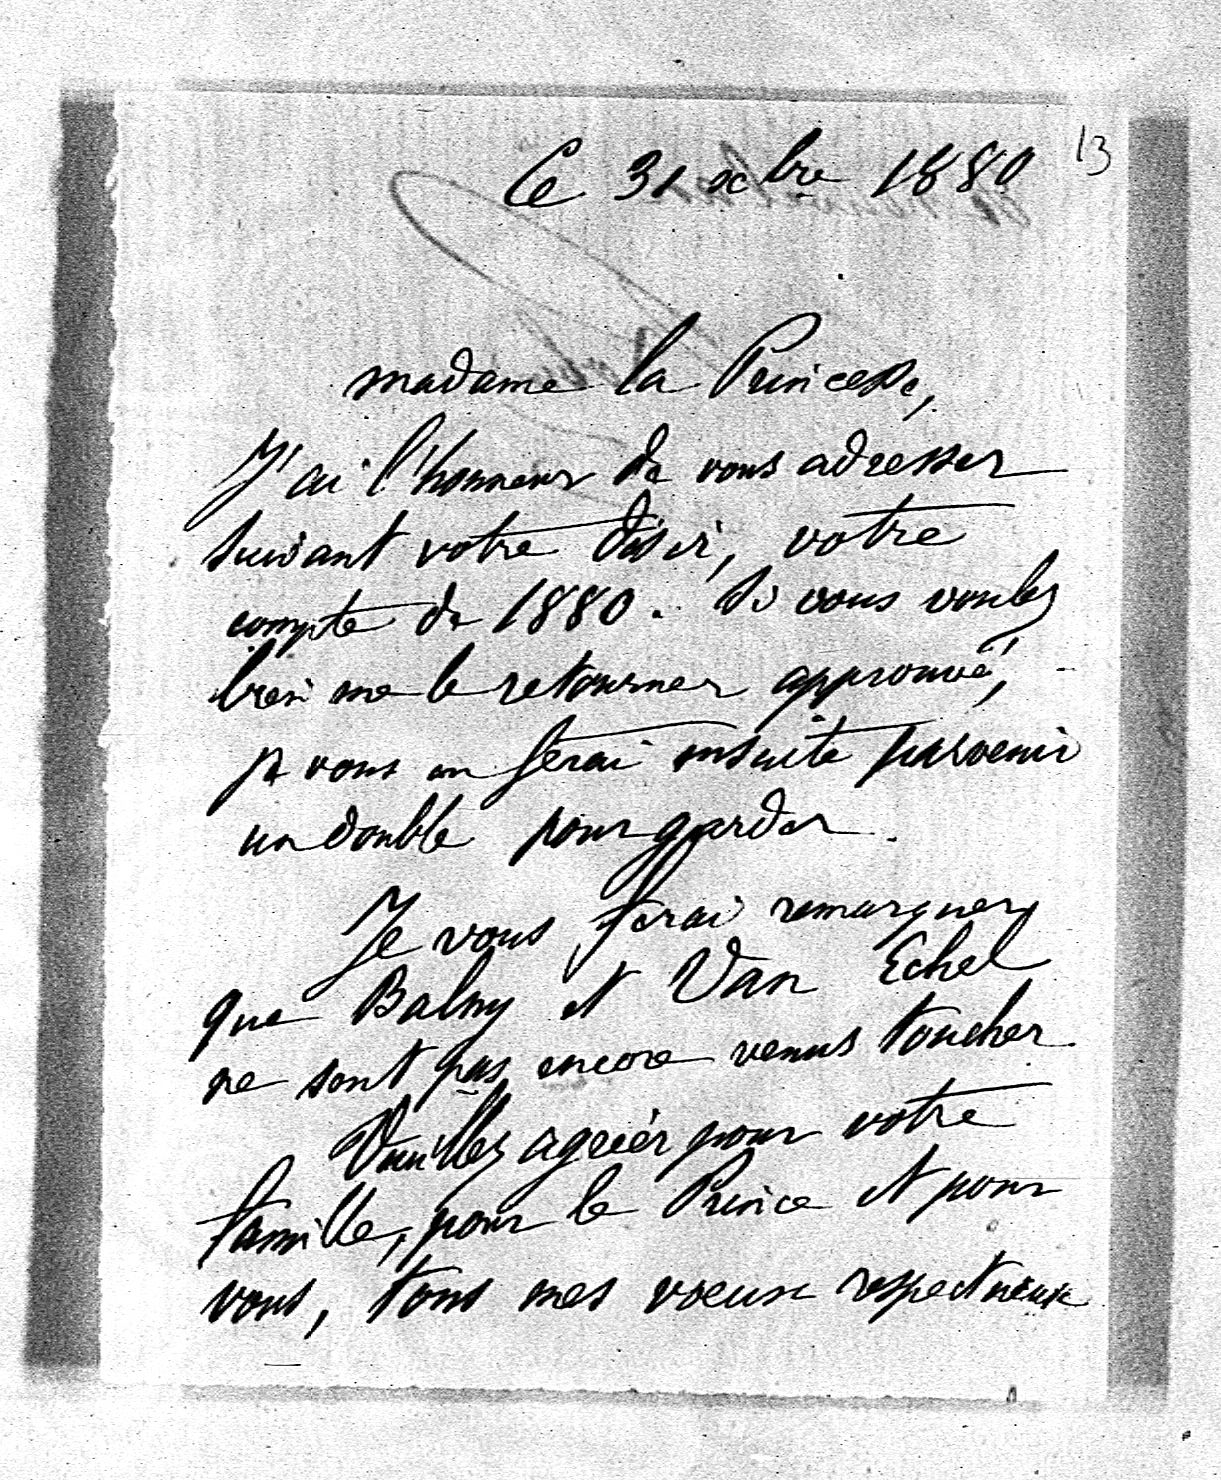 13
Ce 31 xbre 1880
Madame la Princesse,
J'ai l'honneur de vous adresser
suivant votre désir, votre
compte de 1880. Si vous voulez
bien me le retourner approuvé,
je vous en ferai ensuite parvenir
un double pour garder.
Je vous ferai remarquer
que Balny et Van Echel
ne sont pas encore venus toucher
Veuillez agréer pour votre
famille, pour le Prince et pour
vous, tous mes voeux respectueux